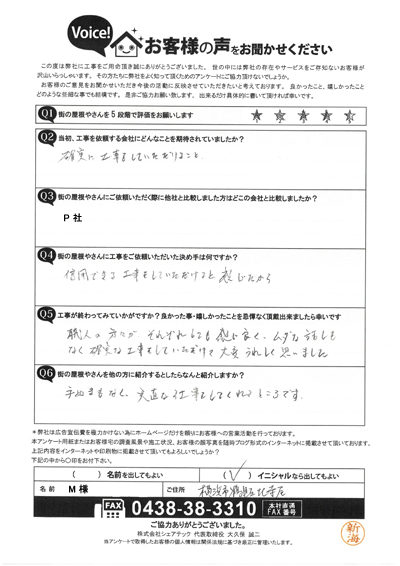 Voice!
お客様の声をお聞かせください
この度は弊社に工事をご用命頂き誠にありがとうございました。世の中には弊社の存在やサービスをご存知ないお客様が
沢山いらっしゃいます。その方たちに弊社をよく知って頂くためのアンケートにご協力頂けないでしょうか。
お客様のご意見をお聞かせいただき今後の活動に反映させていきたいと考えております。良かったこと、嬉しかったこと
どのような些細な事でも結構です。是非ご協力お願い致します。出来るだけ具体的に書いて頂ければ幸いです。
Q1 街の屋根やさんを5段階で評価をお願いします
Q2 当初、工事を依頼する会社にどんなことを期待されていましたか?
確実に工事をしていただけること
Q3 街の屋根やさんにご依頼いただく際に他社と比較しました方はどこの会社と比較しましたか?
P社
Q4 街の屋根やさんに工事をご依頼いただいた決め手は何ですか?
信用できる工事をしていただけると感じたから
Q5 工事が終わってみていかがですか?良かった事・嬉しかったことを忌憚なく頂戴出来ましたら幸いです
職人の方たちがそれぞれとても感じ良く、ムダな話もし
なく確実な工事をしていただけて大変うれしく思いました
Q6 街の屋根やさんを他の方に紹介するとしたらなんと紹介しますか?
手ぬきもなく、実直な工事をしてくれるところです。
*弊社は広告宣伝費を極力かけない為にホームページだけを頼りにお客様への営業活動を行っております。
本アンケート用紙またはお客様宅の調査風景や施工状況、お客様の顔写真を随時ブログ形式のインターネットに掲載させて頂いております。
上記内容をインターネットや印刷物に掲載させて頂いてもよろしいでしょうか?
下記の中から〇印をお付下さい。
( ) 名前を出してもよい ( ✓ ) イニシャルなら出してもよい
名前 M様 ご住所 横浜市
FAX 0438-38-3310 本社直通 FAX番号
ご協力ありがとうございました。
株式会社シェアテック 代表取締役 大久保 誠二
当アンケートで取得したお客様の個人情報は関係法規に基づき厳正に管理いたします。
新海